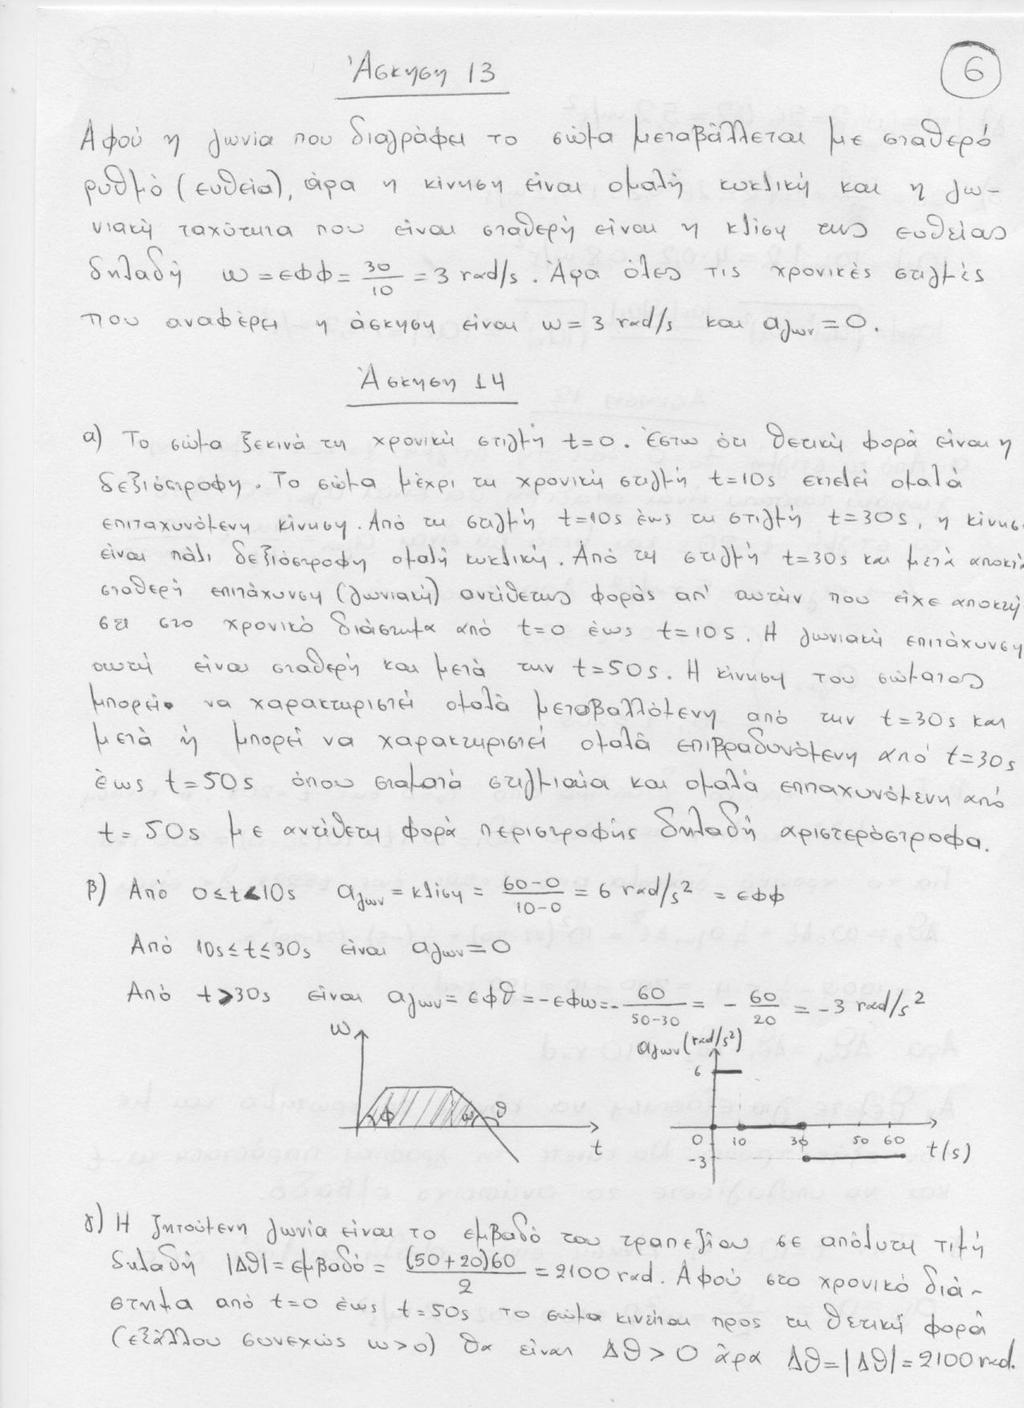 Άσκηση 13
6
Αφού η γωνία που διαγράφει το σώμα μεταβάλλεται με σταθερό
ρυθμό (ευθεία), άρα η κίνηση είναι ομαλή κυκλική και η γω-
νιακή ταχύτητα που είναι σταθερή είναι η κλίση της ευθείας
δηλαδή ω = εφφ = 30/10 = 3 rad/s. Άρα όλες τις χρονικές στιγμές
που αναφέρει η άσκηση είναι ω = 3 rad/s και αγων = 0.
Άσκηση 14
α) Το σώμα ξεκινά τη χρονική στιγμή t=0. Έστω ότι θετική φορά είναι η
δεξιόστροφη. Το σώμα μέχρι τη χρονική στιγμή t=10s εκτελεί ομαλά
επιταχυνόμενη κίνηση. Από τη στιγμή t=10s έως τη στιγμή t=30s, η κίνησ
είναι πάλι δεξιόστροφη ομαλή κυκλική. Από τη στιγμή t=30s και μετά αποκτά
σταθερή επιτάχυνση (γωνιακή) αντίθετης φοράς απ' αυτήν που είχε αποκτή
σει στο χρονικό διάστημα από t=0 έως t=10s. Η γωνιακή επιτάχυνση
αυτή είναι σταθερή και μετά την t=50s. Η κίνηση του σώματος
μπορεί να χαρακτηριστεί ομαλά μεταβαλλόμενη από την t=30s και
μετά ή μπορεί να χαρακτηριστεί ομαλά επιβραδυνόμενη από t=30s
έως t=50s όπου σταματά στιγμιαία και ομαλά επιταχυνόμενη από
t=50s με αντίθετη φορά περιστροφής δηλαδή αριστερόστροφα.
β) Από 0≤t≤10s αγων = κλίση = 60-0/10-0 = 6 rad/s² = εφφ
Από 10s≤t≤30s είναι αγων=0
Από t>30s είναι αγων = εφθ = -εφω = - 60/50-30 = - 60/20 = -3 rad/s²
ω
t
φ ω θ
αγων (rad/s²)
6
0 10 30 50 60 t(s)
-3
γ) Η ζητούμενη γωνία είναι το εμβαδό του τραπεζίου σε απόλυτη τιμή
δηλαδή |Δθ| = εμβαδό = (50+20)60/2 = 2100 rad. Αφού στο χρονικό διά-
στημα από t=0 έως t=50s το σώμα κινείται προς τη θετική φορά
(εξάλλου συνεχώς ω>0) θα είναι Δθ>0 άρα Δθ=|Δθ|=2100 rad.